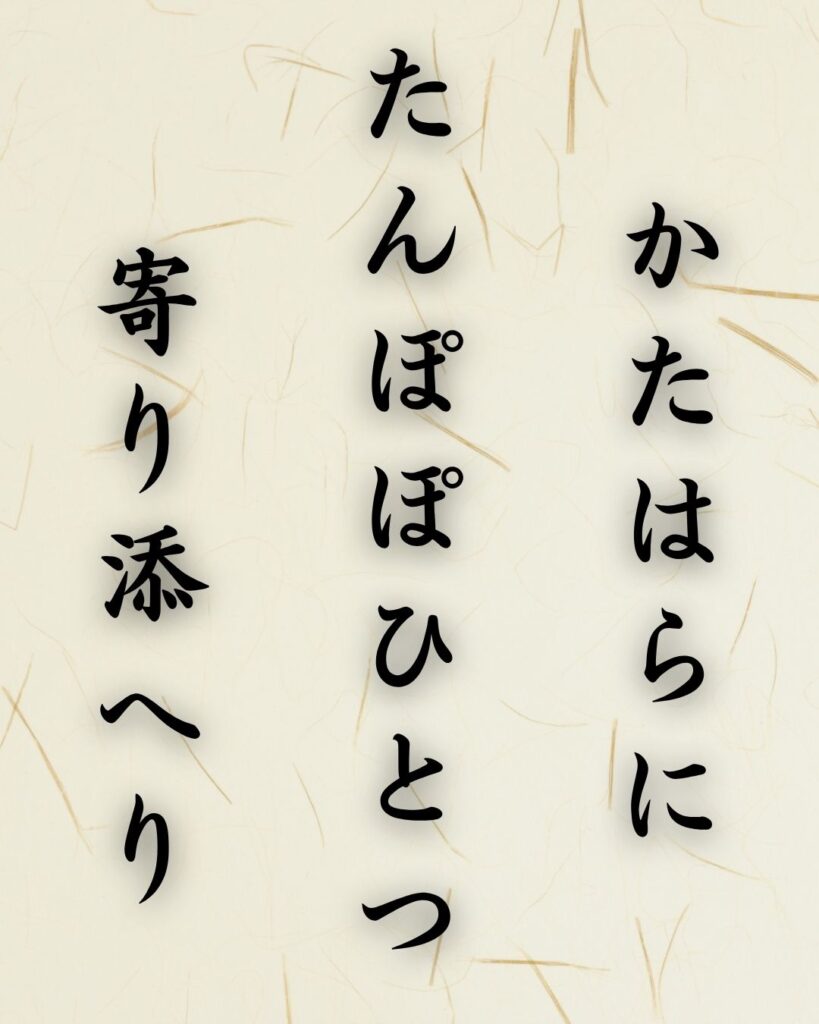 かたはらに
たんぽぽひとつ
寄り添へり